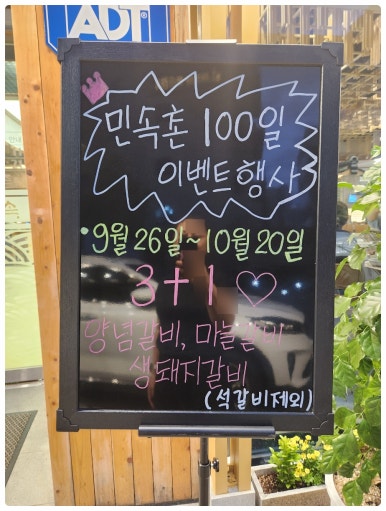 ADT
민속촌 100일
이벤트행사
•9월 26일~10월 20일
3+1 ♡
양념갈비, 마늘갈비
생돼지갈비
(석갈비제외)